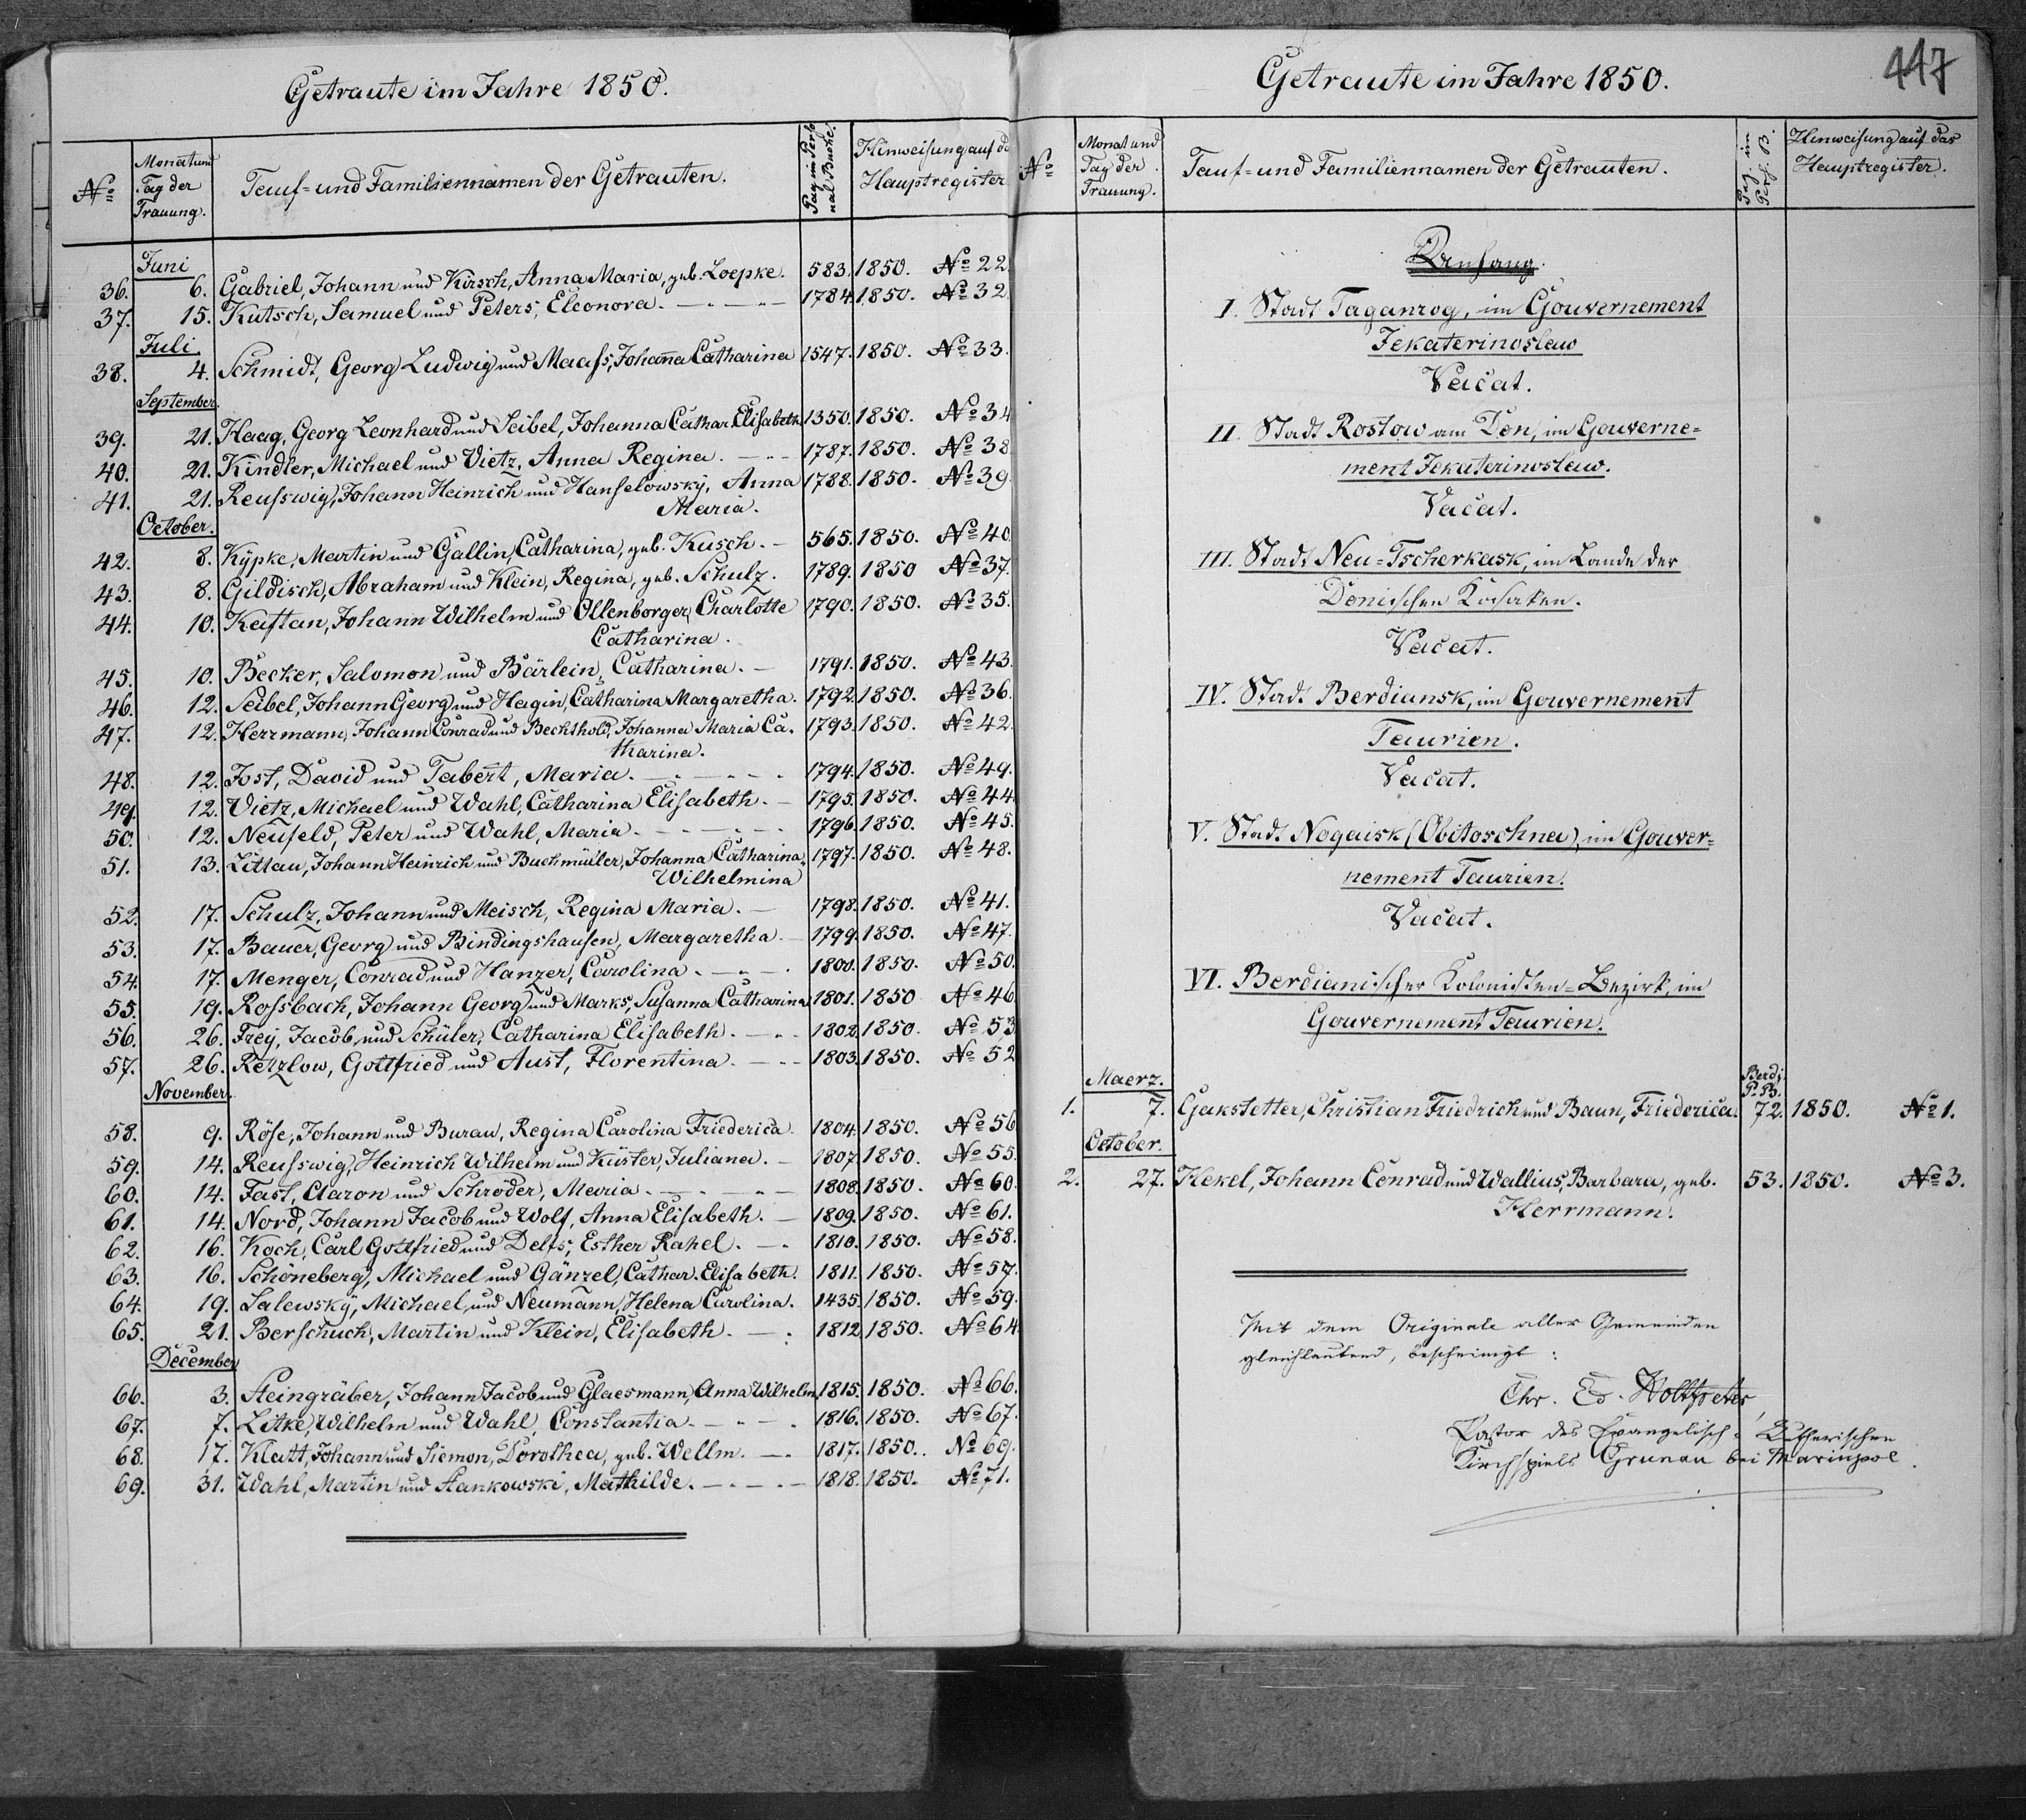 Getraute im Jahre 1850.
No Monat und Tag der Trauung. Tauf- und Familiennamen der Getrauten. Pag. im Perso nal Buche. Hinweisung auf d Hauptregister
Juni
36. 6. Gabriel, Johann und Kirsch, Anna Maria, geb. Loepke. 583. 1850. No 22.
37. 15. Kutsch, Samuel und Peters, Eleonora. 1784. 1850. No 32.
Juli
38. 4. Schmidt, Georg Ludwig und Maaß, Johanna Catharina 1547. 1850. No 33.
September.
39. 21. Haag, Georg Leonhard und Seibel, Johanna Cathar. Elisabeth 1350. 1850. No 34
40. 21. Kindler, Michael und Vietz, Anna Regina. 1787. 1850. No 38
41. 21. Reußwig, Johann Heinrich und Hanselowsky, Anna 1788. 1850. No 39.
Maria.
October.
42. 8. Kÿpke, Martin und Gallin, Catharina, geb. Kusch. 565. 1850. No 40.
43. 8. Gildisch, Abraham und Klein, Regina, geb. Schulz. 1789. 1850 No 37.
44. 10. Kaftan, Johann Wilhelm und Ollenborger, Charlotte 1790. 1850. No 35.
Catharina.
45. 10. Becker, Salomon und Bärlein, Catharina. 1791. 1850. No 43.
46. 12. Seibel, Johann Georg und Hagin, Catharina Margaretha. 1792. 1850. No 36.
47. 12. Herrmann, Johann Conrad und Bechthold, Johanna Maria Ca- 1793. 1850. No 42.
tharina.
48. 12. Jost, David und Tabert, Maria. 1794. 1850. No 49.
49. 12. Vietz, Michael und Wahl, Catharina Elisabeth. 1795. 1850. No 44.
50. 12. Neufeld, Peter und Wahl, Maria. 1796. 1850. No 45.
51. 13. Littau, Johann Heinrich und Buchmüller, Johanna Catharina 1797. 1850. No 48.
Wilhelmina
52. 17. Schulz, Johann und Meisch, Regina Maria. 1798. 1850. No 41.
53. 17. Bauer, Georg und Bindingshausen, Margaretha. 1799. 1850. No 47.
54. 17. Menger, Conrad und Hanzer, Carolina. 1800. 1850. No 50.
55. 19. Roßbach, Johann Georg und Marks, Susanna Catharina 1801. 1850 No 46
56. 26. Freÿ, Jacob und Schüler, Catharina Elisabeth. 1802. 1850. No 53
57. 26. Retzlow, Gottfried und Aust, Florentina. 1803. 1850. No 52
November.
58. 9. Röse, Johann und Burau, Regina Carolina Friederica. 1804. 1850. No 56
59. 14. Reußwig, Heinrich Wilhelm und Küster, Juliana. 1807. 1850. No 55.
60. 14. Fast, Aaron und Schröder, Maria. 1808. 1850. No 60.
61. 14. Nord, Johann Jacob und Wolf, Anna Elisabeth. 1809. 1850. No 61.
62. 16. Koch, Carl Gottfried und Delfs, Esther Rahel. 1810. 1850. No 58.
63. 16. Schöneberg, Michael und Gänzel, Cathar. Elisabeth. 1811. 1850. No 57.
64. 19. Salewskÿ, Michael, und Neumann, Helena Carolina. 1435. 1850. No 59.
65. 21. Berschuch, Martin und Klein, Elisabeth. 1812. 1850. No 64.
December
66. 3. Steingräber, Johann Jacob und Glaesmann, Anna Wilhelm. 1815. 1850. No 66.
67. 7. Litke, Wilhelm und Wahl, Constantia. 1816. 1850. No 67.
68. 17. Klatt, Johann und Siemon, Dorothea, geb. Wellm. 1817. 1850. No 69.
69. 31. Wahl, Martin und Stankowski, Mathilde. 1818. 1850. No 71.
Getraute im Jahre 1850.
447
No Monat und Tag der Trauung. Tauf- und Familiennamen der Getrauten. Pag. im Pers. B. Hinweisung auf das Hauptregister.
Anhang.
I. Stadt Taganrog, im Gouvernement
Jekaterinoslaw
Vacat.
II. Stadt Rostow am Don, im Gouverne-
ment Jekaterinoslaw.
Vacat.
III. Stadt Neu-Tscherkask, im Lande der
Donischen Kosaken.
Vacat.
IV. Stadt Berdiansk, im Gouvernement
Taurien.
Vacat.
V. Stadt Nogaisk (Obitoschna), im Gouver-
nement Taurien.
Vacat.
VI. Berdianischer Kolonisten-Bezirk, im
Gouvernement Taurien.
Maerz. Berdj. P. B.
1. 7. Gakstetter, Christian Friedrich und Baun, Friederica. 72. 1850. No 1.
October.
2. 27. Hekel, Johann Conrad und Wallius, Barbara, geb. 53. 1850. No 3.
Herrmann.
Mit dem Originale aller Gemeinden
gleichlautend, bescheinigt:
Chr. Ed.
Pastor des Evangelisch-Lutherischen
Kirchspiels Grunau bei Mariupol.